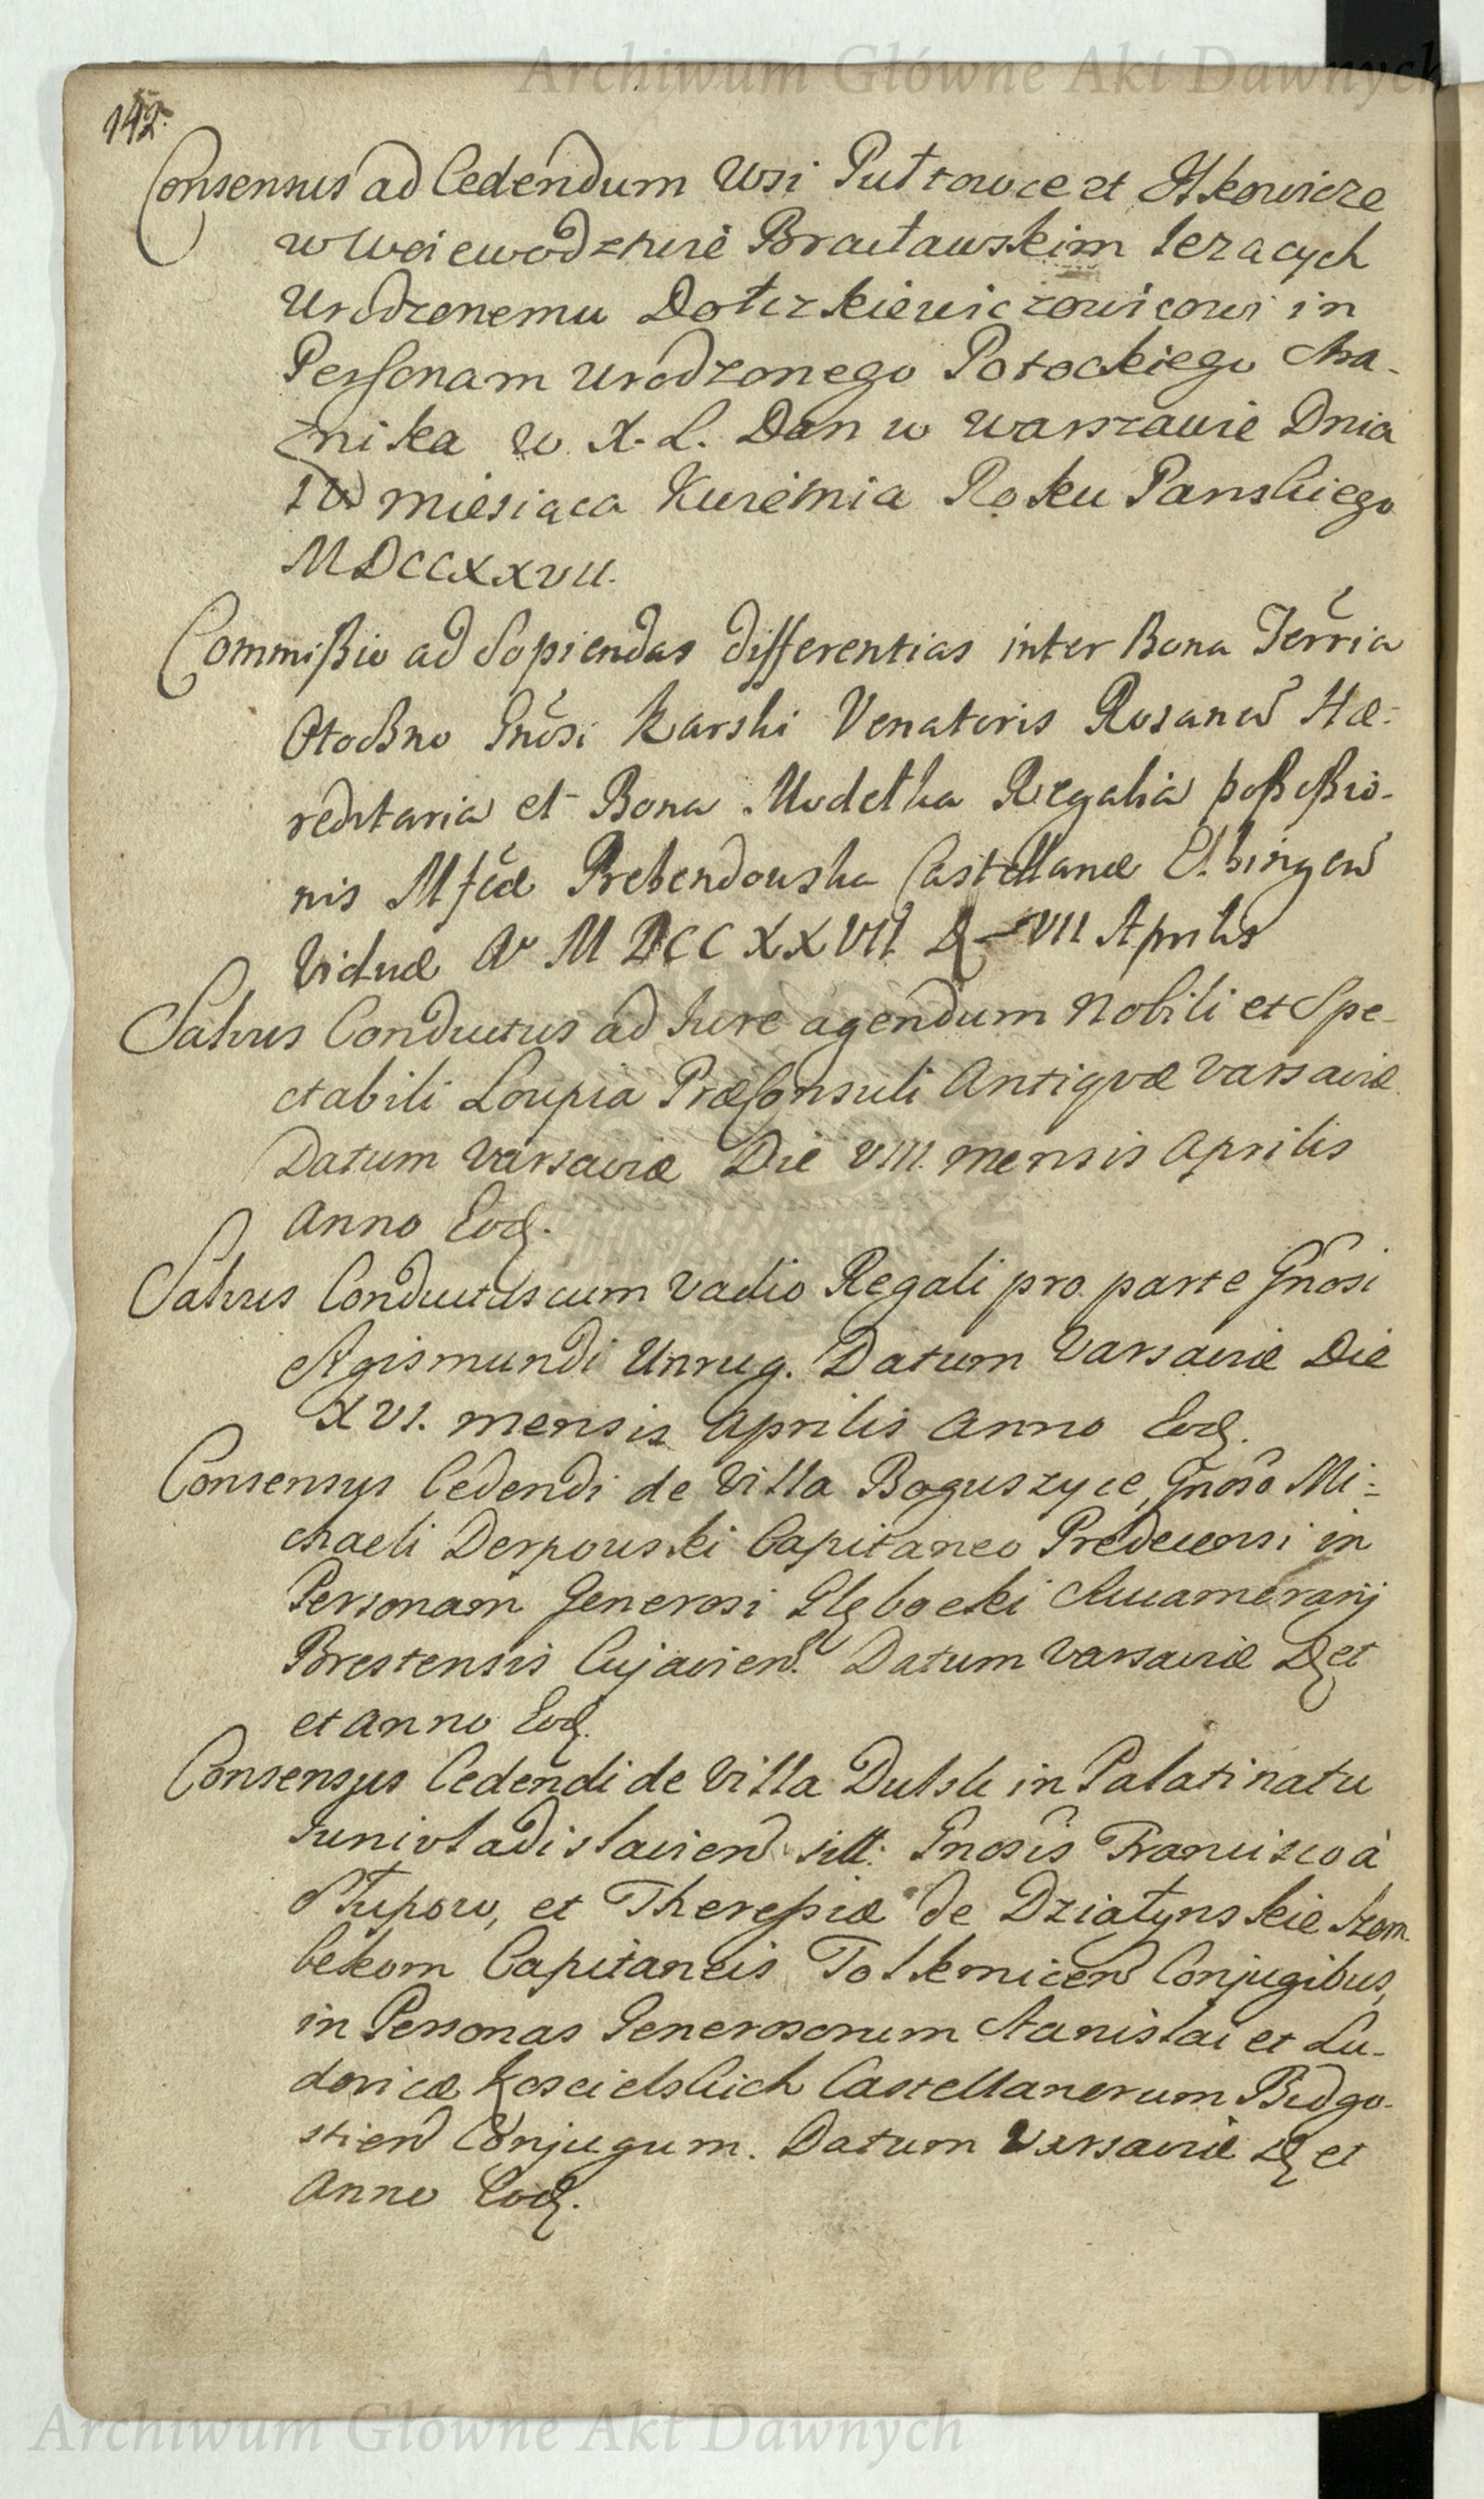 Archiwum Główne Akt Dawnych
142.
Consensus ad Cedendum Wsi Putrowce et Itkowicze
w Woiewodztwie Bracławskim lezacych
Urodzonemu in
Personam Urodzonego Potockiego Stra-
znika W. X. L. Dan w Warszawie Dnia
miesiąca Kwietnia Roku Panskiego
MDCCXXVII.
Commißio ad Sopiendas differentias inter Bona Terria
Otoczno Gnosi Karski Venatoris Rosanen Hæ-
reditaria et Bona Modelka Regalia poßeßio-
nis Mfcæ Prebendowska Castellanæ Elbingen
Viduæ Ao MDCCXXVII D VII Aprilis
Salvus Conductus ad Iure agendum Nobili et Spe-
ctabili Loupia Præconsuli Antiqvæ Varsaviæ
Datum Varsaviæ Die VIII. mensis Aprilis
Anno Eod.
Salvus Conductus cum Vadio Regali pro parte Gnosi
Sigismundi Unrug. Datum Varsaviæ Die
XVI. mensis Aprilis Anno Eod.
Consensus Cedendi de Villa Boguszyce, Gnoso Mi-
chaeli Derpowski Capitaneo Predecensi in
Personam Generosi Głębocki Succamerarij
Brestensis Cujavien. Datum Varsaviæ D et
et Anno Eod.
Consensus Cedendi de Villa Dulsk in Palatinatu
Iunivladislavien sitt: Gnosis Francisco à
Słupow, et Thereßiæ de Dziatynskie Szem
bekom Capitaneis Tolkmicen Conjugibus,
in Personas Generosorum Stanislai et Lu-
dovicæ Koscielskich Castellanorum Bidgo-
stien Conjugum. Datum Varsaviæ D et
Anno Eod.
Archiwum Główne Akt Dawnych